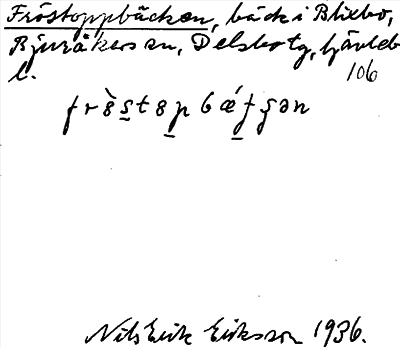 Fröstoppbäcken, bäck i Blixbo,
Bjuråkers sn, Delsbo tg, Gävleb
l.
106
Nils Erik Eriksson 1936.